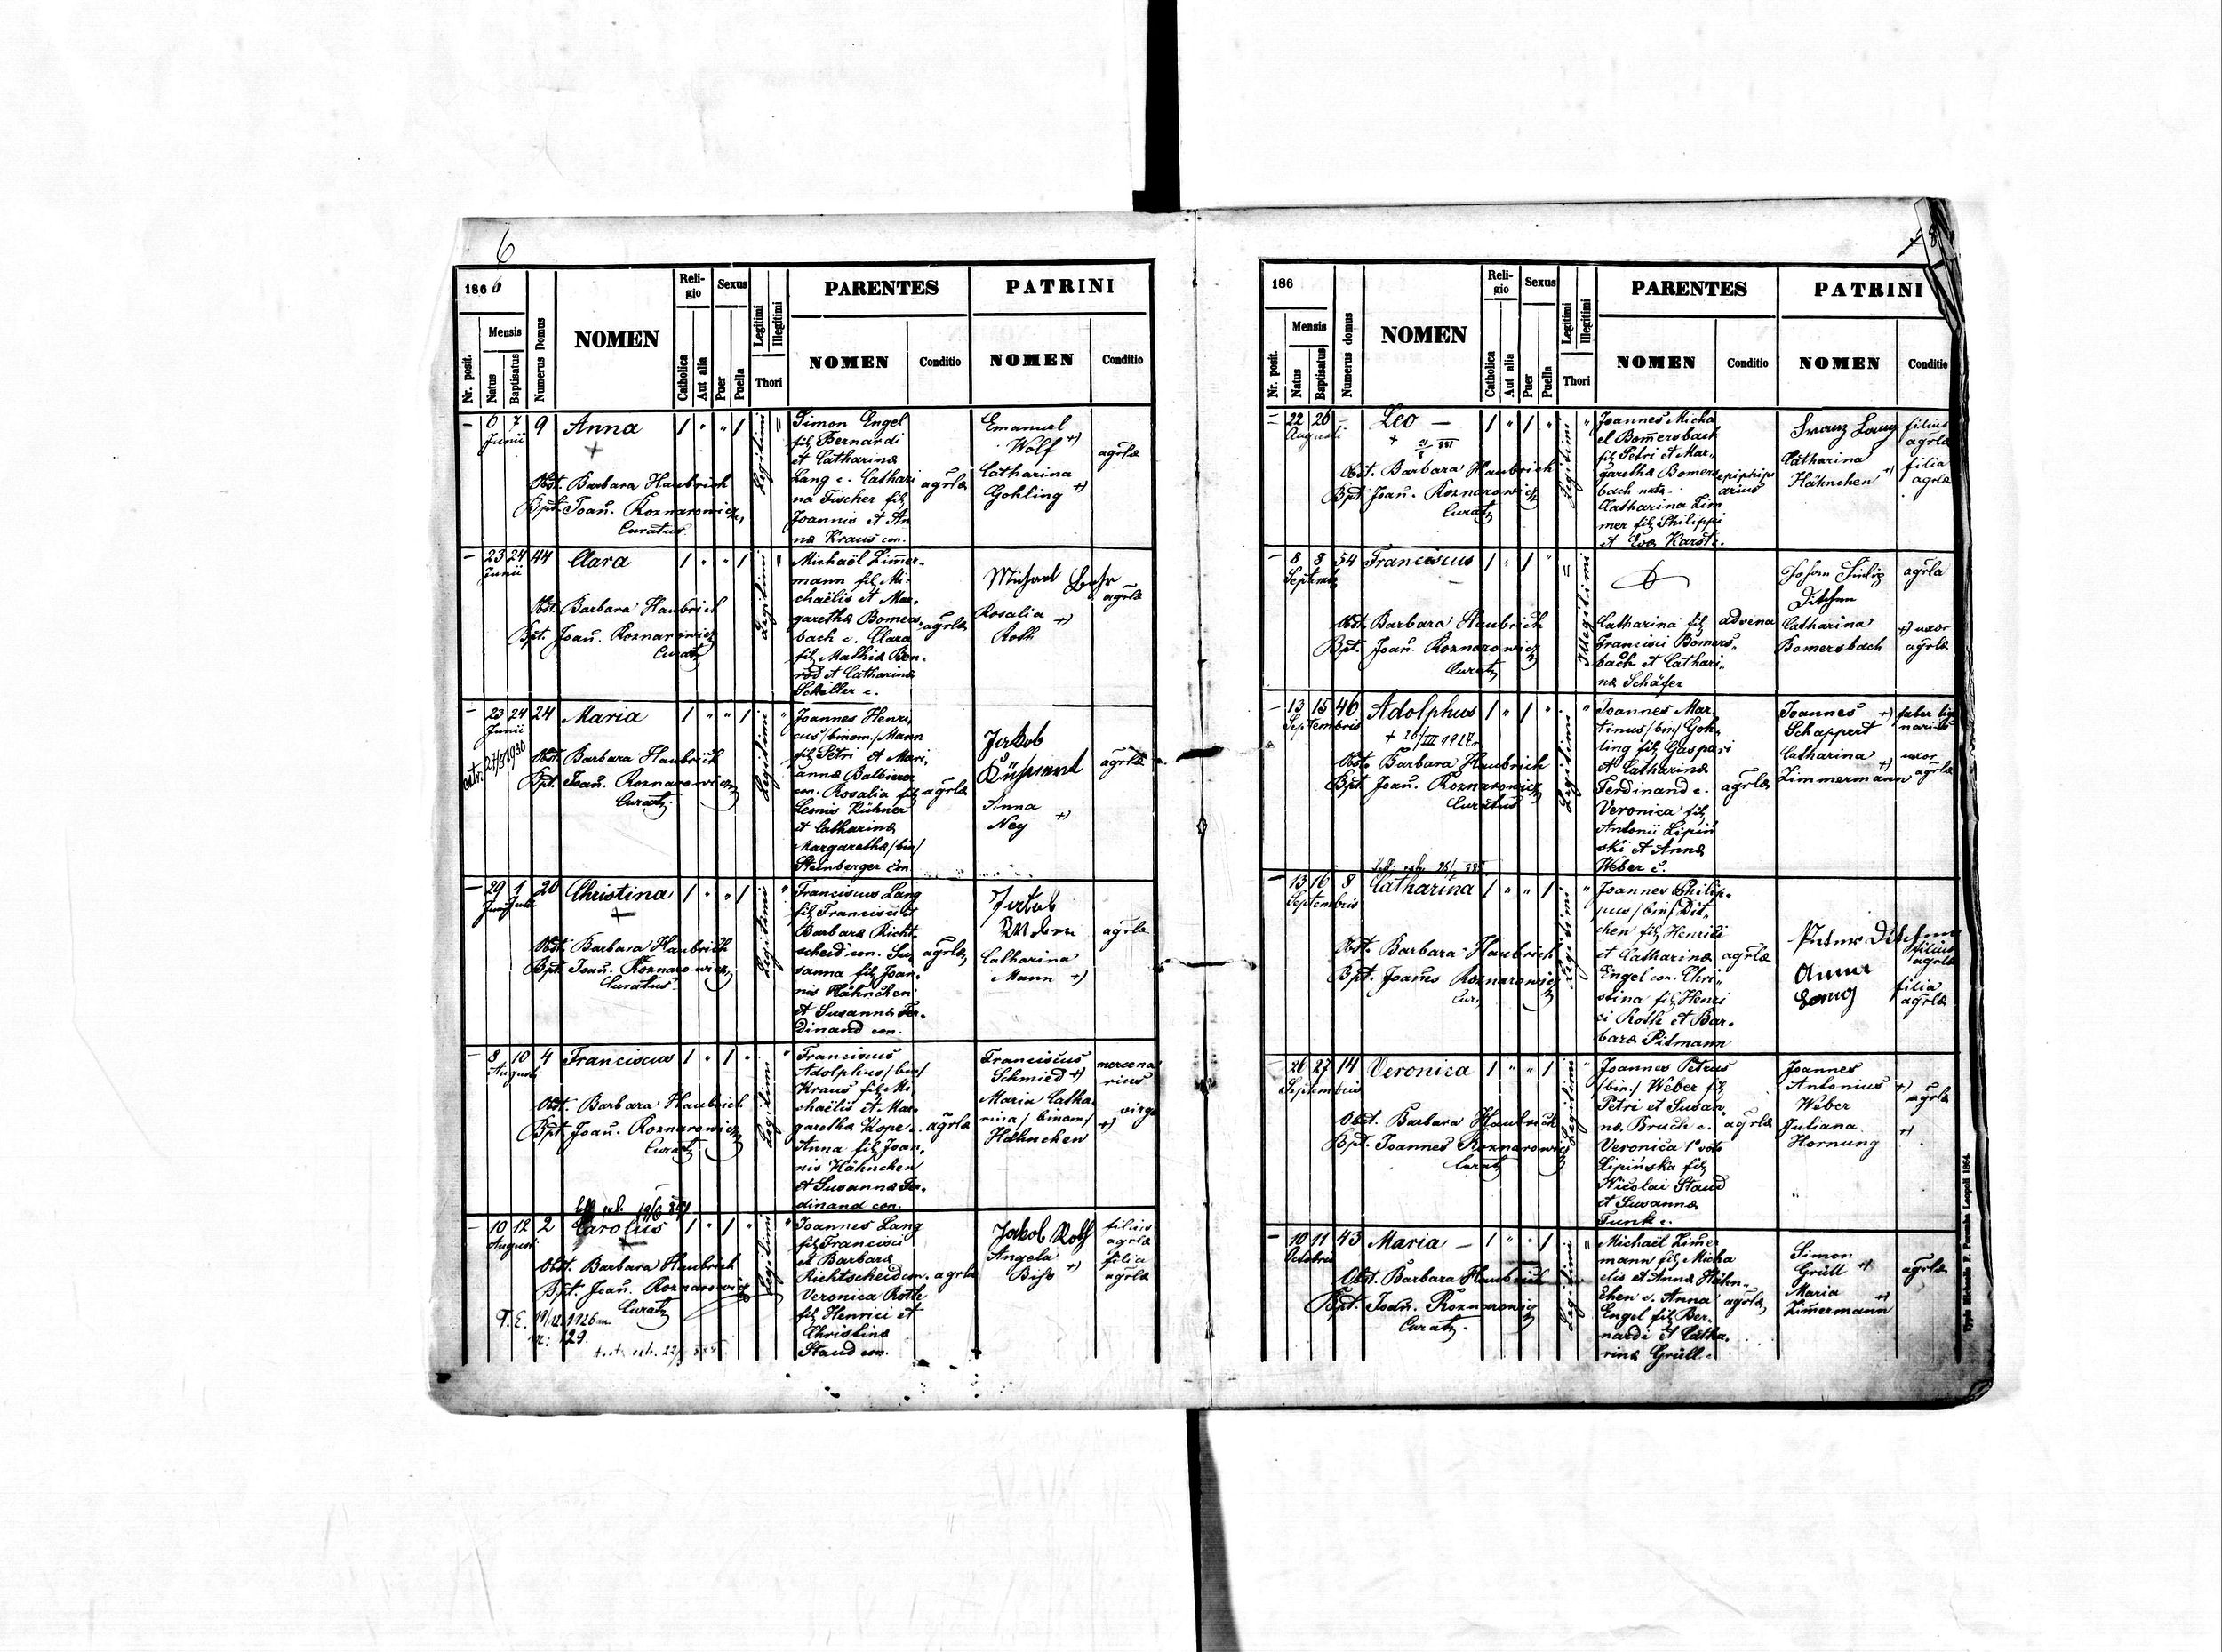 6
186 6
Nr. posit.
Mensis
Natus
Baptisatus
Numerus Domus
NOMEN
Reli-
gio
Catholica
Aut alia
Sexus
Puer
Puella
Legitimi
Illegitimi
Thori
PARENTES
NOMEN
Conditio
PATRINI
NOMEN
Conditio
– 6 7 9 Anna 1 " " 1
Junii
Obst. Barbara Haubrich
Bpt. Joañ. Roznarowicz
Curatus
Legitimi
Simon Engel
filg Bernardi
et Catharina
Lang c. Cathari
na Fischer filg
Joannis et An
na Kraus con.
agrla
Emanuel
Wolf +)
Catharina
Gohling +)
agrla
– 23 24 44 Clara 1 " " 1
Junii
Obst. Barbara Haubrich
Bpt. Joañ. Roznarowicz
Curatg
Legitimi
Michaël Zim̄er-
mann filg Mi-
chaëlis et Mar-
garetha Bomers-
bach c. Clara
filg Mathia Ben-
rod et Catharina
Schiller c.
agrla
Michael
Rosalia +)
Roth
agrla
– 23 24 24 Maria 1 " " 1
Junii
27/5 1930
Obst. Barbara Haubrich
Bpt. Joañ. Roznarowicz
Curatg
Legitimi
Joannes Henri,
cus/binom./Mann
filg Petri et Mari,
anna Balbierz
con. Rosalia filg
Leonis Kühner
et Catharina
Margaretha/bin/
Steinberger con.
agrla
Jakob
Anna
Ney +)
agrla
– 29 1 20 Christina 1 " " 1
Junii Julii
Obst. Barbara Haubrich
Bpt. Joañ. Roznarowicz
Curatus
Legitimi
Franciscus Lang
filg Francisci et
Barbara Richt-
scheid con. Su,
sanna filg Joan-
nis Hähnchen
et Susanna Fer-
dinand con.
agrla
Jakob
Catharina
Mann +)
agrla
– 8 10 4 Franciscus 1 " 1 "
Augusti
Obst. Barbara Haubrich
Bpt. Joañ. Roznarowicz
Curatg
Legitimi
Franciscus
Adolphus/bin/
Kraus filg Mi-
chaëlis et Mar-
garetha Kope c.
Anna filg Joan,
nis Hähnchen
et Susanna Fer-
dinand con.
agrla
Franciscus
Schmied +)
Maria Catha-
rina/binom/
Hähnchen +)
mercena
rius
virgo
– 10 12 2 Carolus 1 " 1 "
Augusti
Obst. Barbara Haubrich
Bpt. Joañ. Roznarowicz
Curatg
T. E. 1926
nr: 129.
Legitimi
Joannes Lang
filg Francisci
et Barbara
Richtscheid con.
Veronica Roth
filg Henrici et
Christina
Staud con.
agrla
Jakob Rolf
Angela
+)
filius
agrla
filia
agrla
186
Nr. posit.
Mensis
Natus
Baptisatus
Numerus domus
NOMEN
Reli-
gio
Catholica
Aut alia
Sexus
Puer
Puella
Legitimi
Illegitimi
Thori
PARENTES
NOMEN
Conditio
PATRINI
NOMEN
Conditio
22 26 – Leo – 1 " 1 "
Augusti
Obst. Barbara Haubrich
Bpt. Joañ. Roznarowicz
Curatg
Legitimi
Joannes Micha
el Bom̄ersbach
filg Petri et Mar-
garetha Bomers
bach nata
Catharina Zim
mer filg Philippi
et Eva Karst c.
ephiphi
arius
Franz Lang
Catharina
Hähnchen +)
filius
agrla
filia
agrla
– 8 8 54 Franciscus 1 " 1 "
Septemb
Obst. Barbara Haubrich
Bpt. Joañ. Roznarowicz
Curatg
Illegitimi
Catharina filg
Francisci Bomers-
bach et Cathari-
na Schäfer
advena
Catharina
Bomersbach
agrla
+) uxor
agrla
– 13 15 46 Adolphus 1 " 1 "
Septembris
+ 26/III 1927
Obst. Barbara Haubrich
Bpt. Joañ. Roznarowicz
Curatus
Legitimi
Joannes Mar-
tinus/bin/Goh-
ling filg Gaspari
et Catharina
Ferdinand c.
Veronica filg
Antonii Lipiń
ski et Anna
Weber c.
agrla
Joannes +)
Schappert
Catharina
Zimmermann +)
faber lig
narius
uxor
agrla
– 13 16 8 Catharina 1 " " 1
Septembris
Obst. Barbara Haubrich
Bpt. Joañes Roznarowicz
Cur.
Legitimi
Joannes Philip-
pus/bin/Dit-
chen filg Henrici
et Catharina
Engel con. Chri-
stina filg Henri
ci Roth et Bar-
bara Pitmann
agrla
Anna
Lang
filius
agrla
filia
agrla
– 26 27 14 Veronica 1 " " 1
Septembris
Obst. Barbara Haubrich
Bpt. Joannes Roznarowicz
Curatg
Legitimi
Joannes Petrus
/bin./ Weber filg
Petri et Susan,
na Bruch c.
Veronica 1º voto
Lipińska filg
Nicolai Staud
et Susanna
Funk c.
agrla
Joannes
Antonius +)
Weber
Juliana +)
Hornung
agrla
– 10 11 43 Maria – 1 " " 1
Octobris
Obst. Barbara Haubrich
Bpt. Joañ. Roznarowicz
Curatg
Legitimi
Michaël Zim̄er
mann filg Micha
elis et Anna Hähn-
chen c. Anna
Engel filg Ber-
nardi et Catha-
rina Grüll c.
agrla
Simon
Grüll +)
Maria
Zimermann +)
agrla
Typis Michaelis F. Poremba Leopoli 1864.